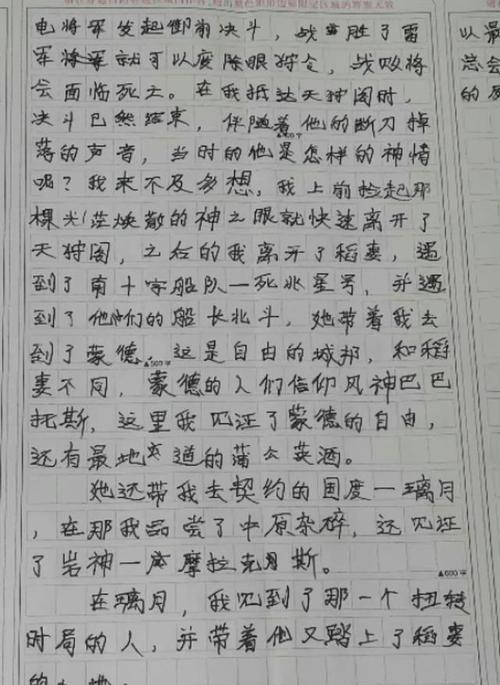 电将军发起御前决斗，战胜了雷
军就可以废除眼狩令，战败将
会面临死亡。在我抵达天狩阁时，
决斗已然结束，伴随着他的断刀掉
落的声音，当时的他是怎样的神情
呢？我来不及多想，我上前捡起那
棵光芒焕散的神之眼就快速离开了
天狩阁，之后的我离开了稻妻，遇
到了南十字船队一死兆星号，并遇
到了他们的船长北斗，她带着我去
到了蒙德，这是自由的城邦，和稻
妻不同，蒙德的人们信仰风神巴巴
托斯，这里我见证了蒙德的自由，
还有最地道的蒲公英酒。
她还带我去契约的国度一璃月
，在那我品尝了中原杂碎，还见证
了岩神一摩拉克斯。
▲600字
在璃月，我见到了那一个扭转
时局的人，并带着他又踏上了稻妻
以最
总会
的